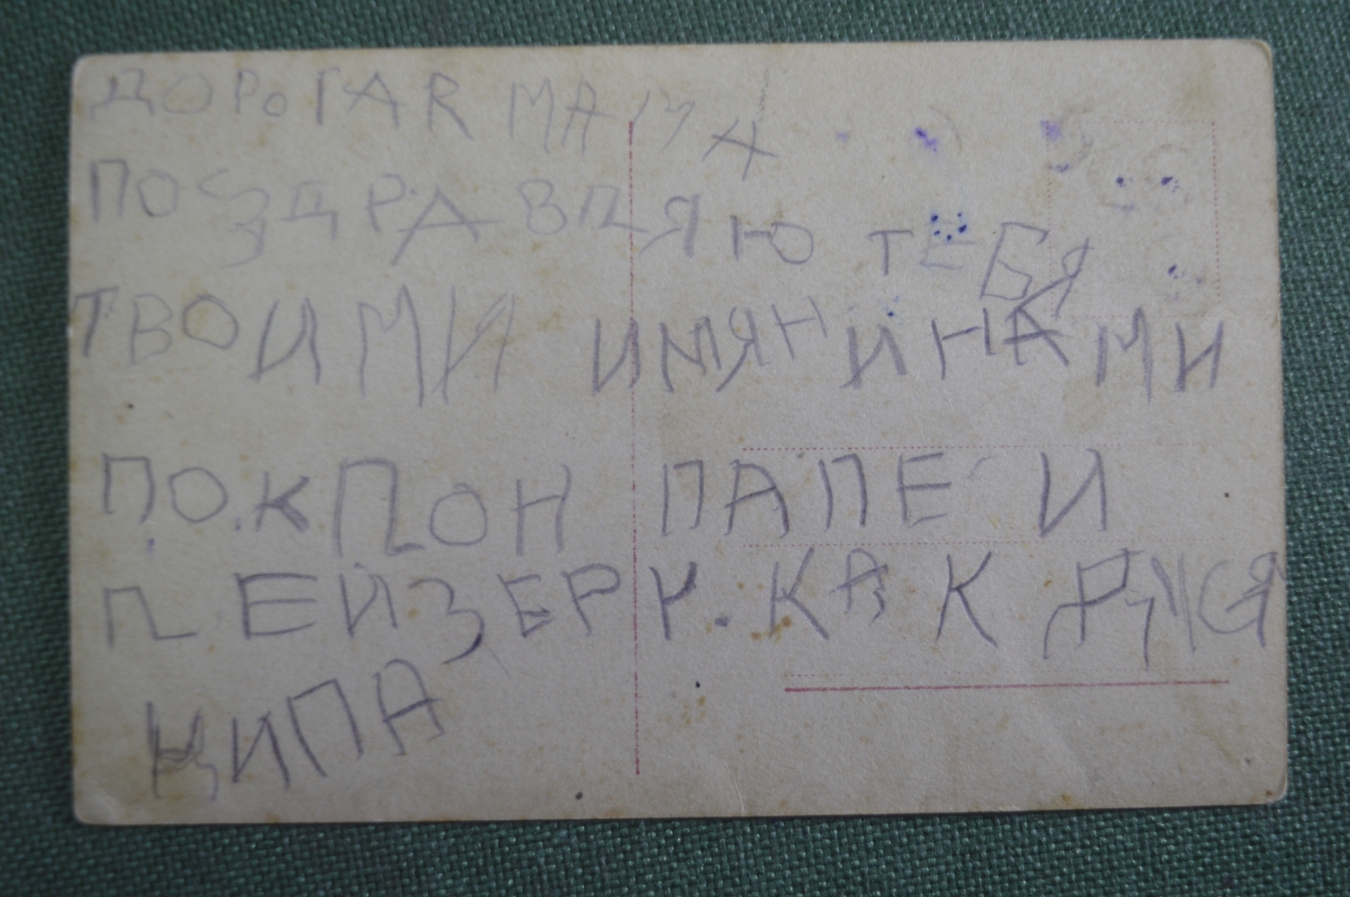 ДОРОГАЯ МАМА
ПОЗДРАВЛЯЮ ТЕБЯ
ТВОИМИ ИМЯНИНАМИ
ПОКЛОН ПАПЕ И
ЛЕЙЗЕРУ. КАК
ЦИПА